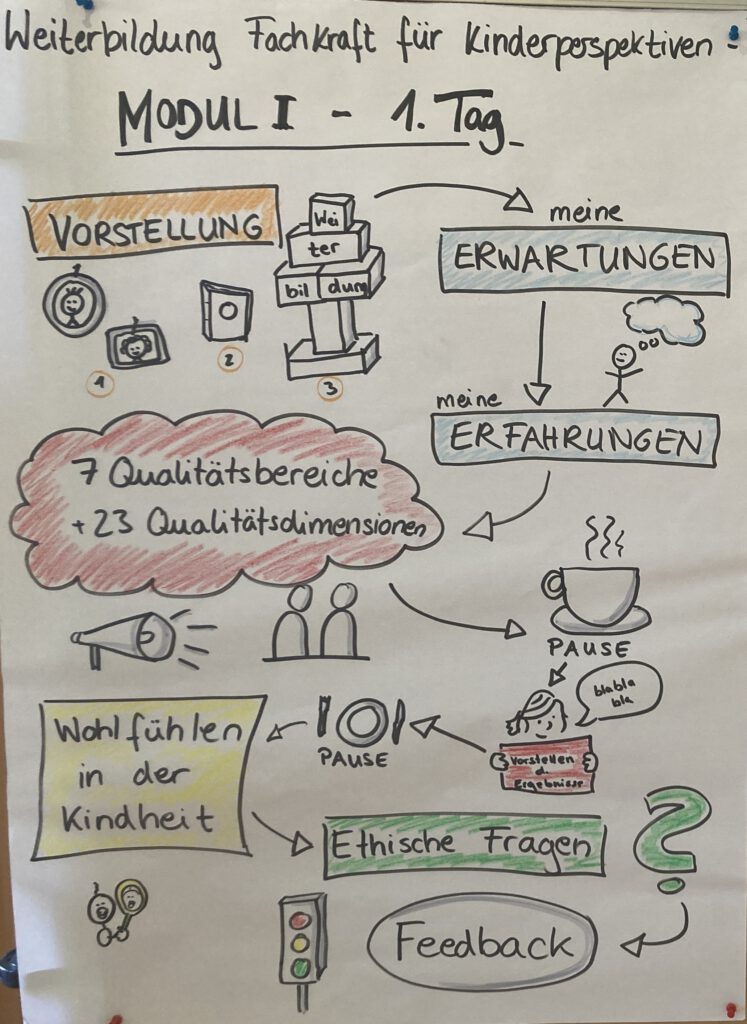 Weiterbildung Fachkraft für Kinderperspektiven -
MODUL I - 1. Tag
VORSTELLUNG
Wei
ter
bil dung
1
2
3
meine
ERWARTUNGEN
meine
ERFAHRUNGEN
7 Qualitätsbereiche
+ 23 Qualitätsdimensionen
PAUSE
blabla
bla
Vorstellen
d.
Ergebnisse
PAUSE
Wohlfühlen
in der
Kindheit
Ethische Fragen
?
Feedback